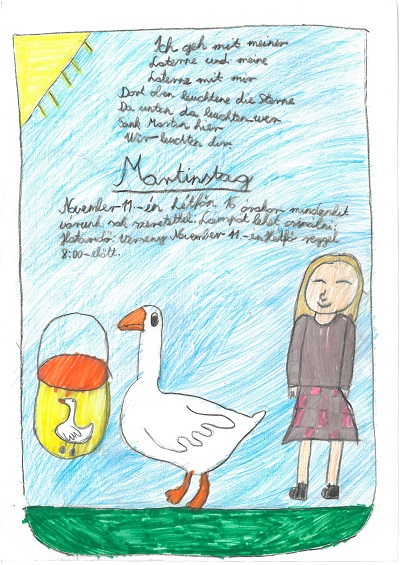 Ich geh mit meiner
Laterne und meine
Laterne mit mir
Dort oben leuchtene die Sterne
Da unten da leuchten wir
Sankt Martin hier
Wir leuchten dir.
Martinstag
November 11.-én hétfőn 16 órakor mindenkit
várunk sok szeretettel. Lámpát lehet csinálni,
Határidő: Verseny November 11.-én hétfő reggel
8:00-előtt.